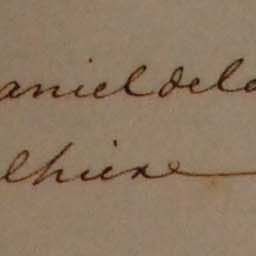 aniel dela
lhiere